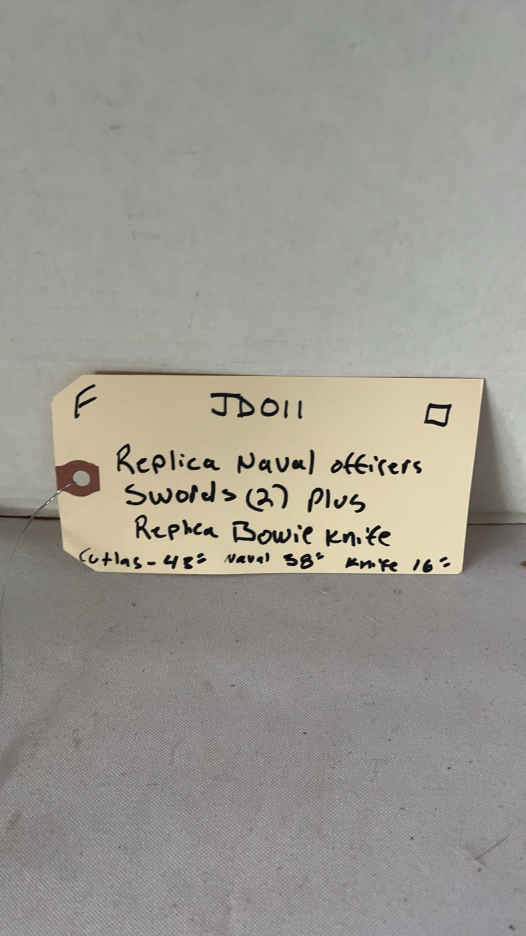 F JD011
Replica Naval officers
Swords (2) Plus
Replica Bowie Knife
Cutlas - 48" Naval 38" Knife 16"